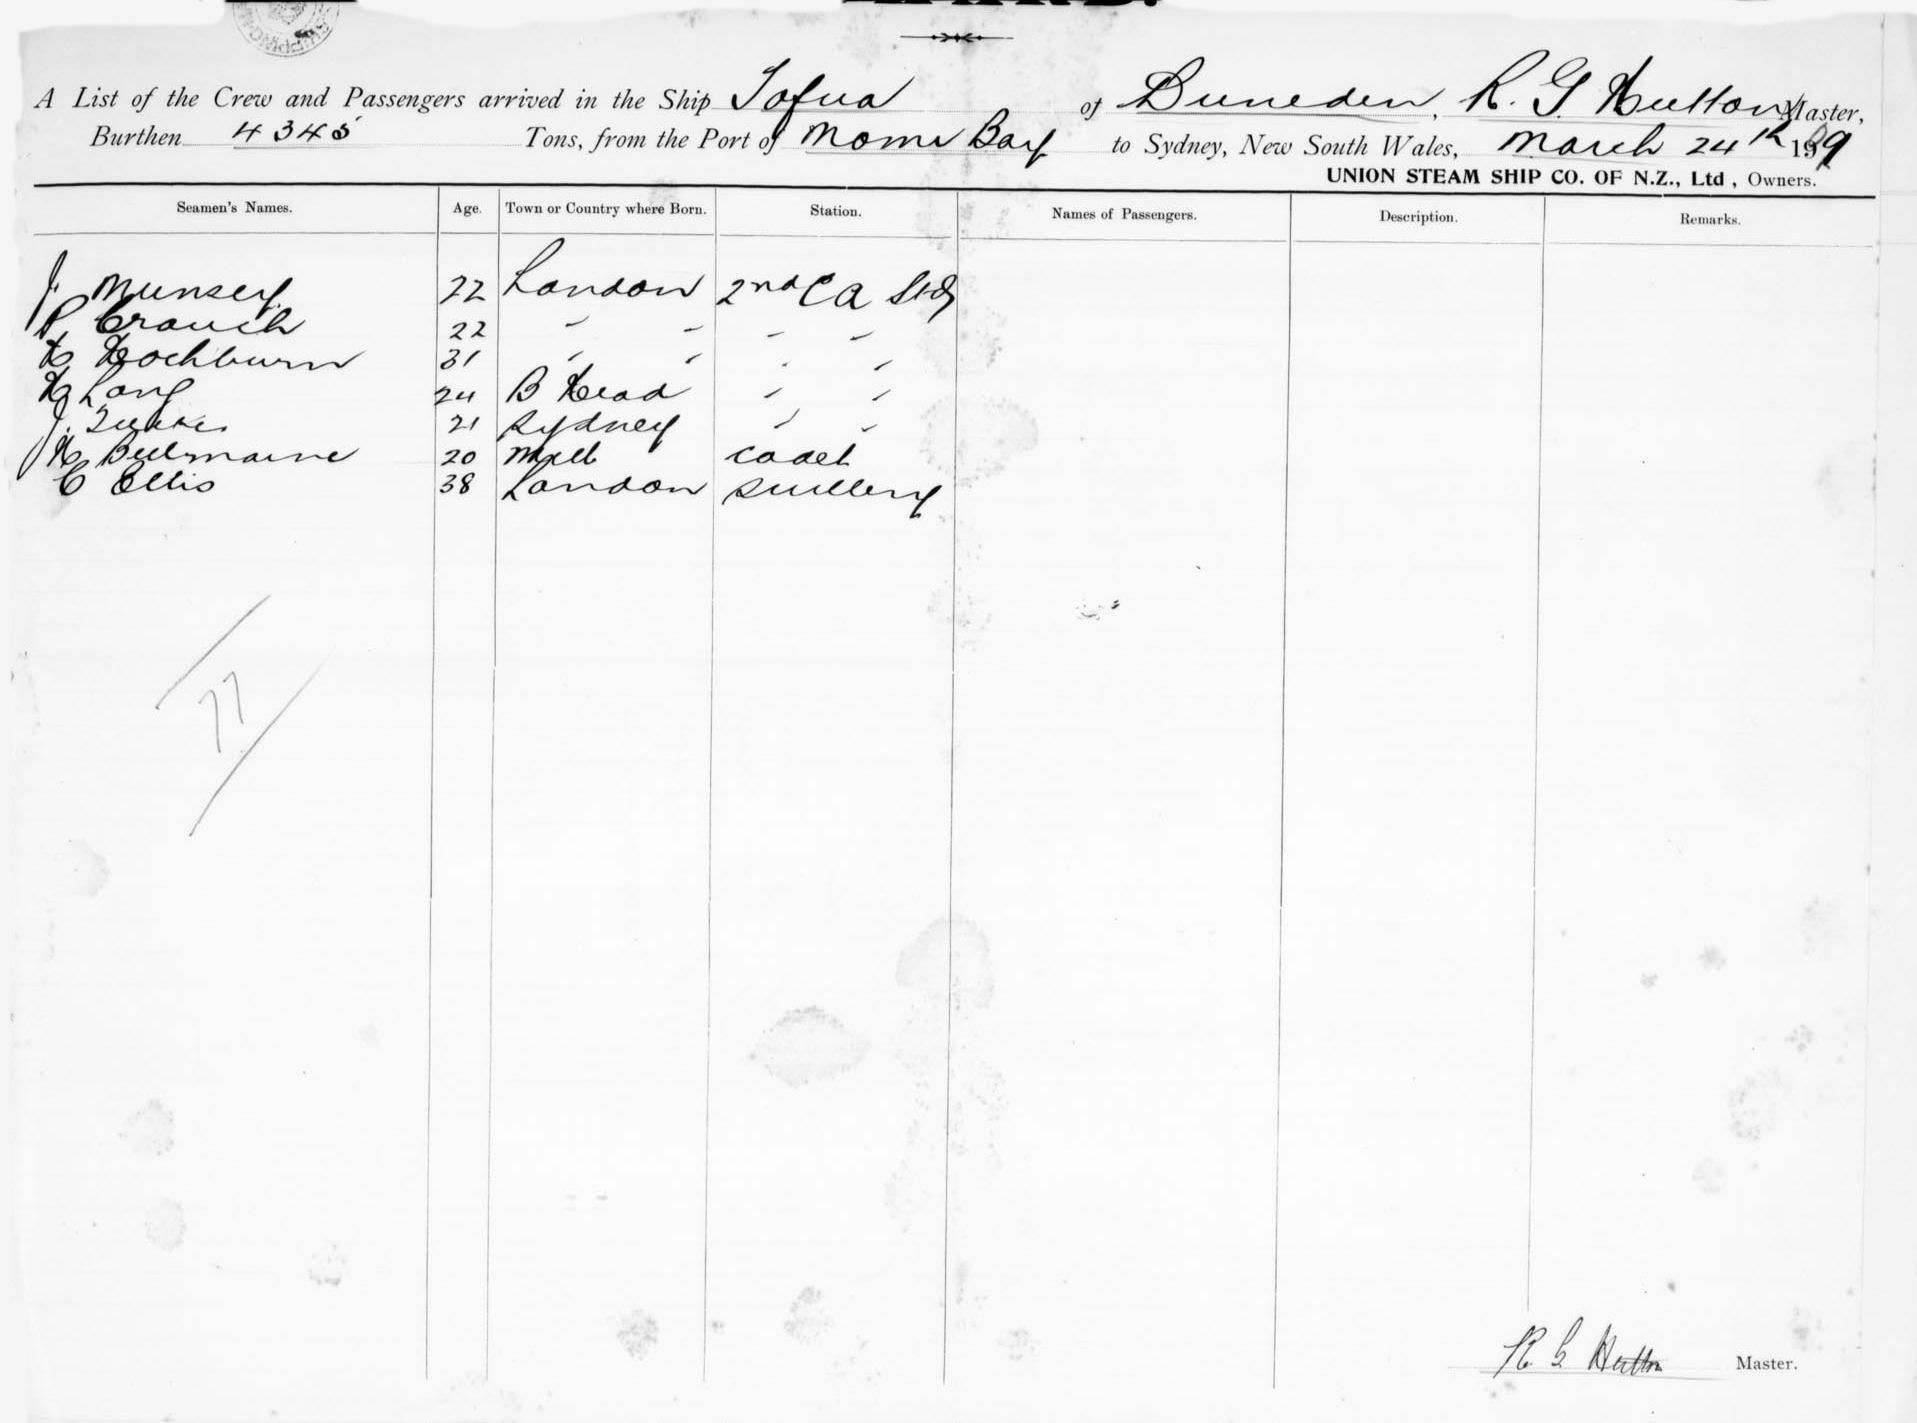 A List of the Crew and Passengers arrived in the Ship Tofua of Duneden, R. G Hutton Master,
Burthen 4345 Tons, from the Port of Momi Bay to Sydney, New South Wales, March 24th 1909
UNION STEAM SHIP CO. OF N.Z., Ltd, Owners.
Seamen's Names. Age. Town or Country where Born. Station. Names of Passengers. Description. Remarks.
J. Munsey 22 London 2nd Cl
P. Crouch 22 " " " "
H Hochburn 31 " " " "
H Long 24 B Head " "
J. 21 Sydney " "
H 20 Melb cadet
C Ellis 38 London Scullery
77
R G Hutton Master.